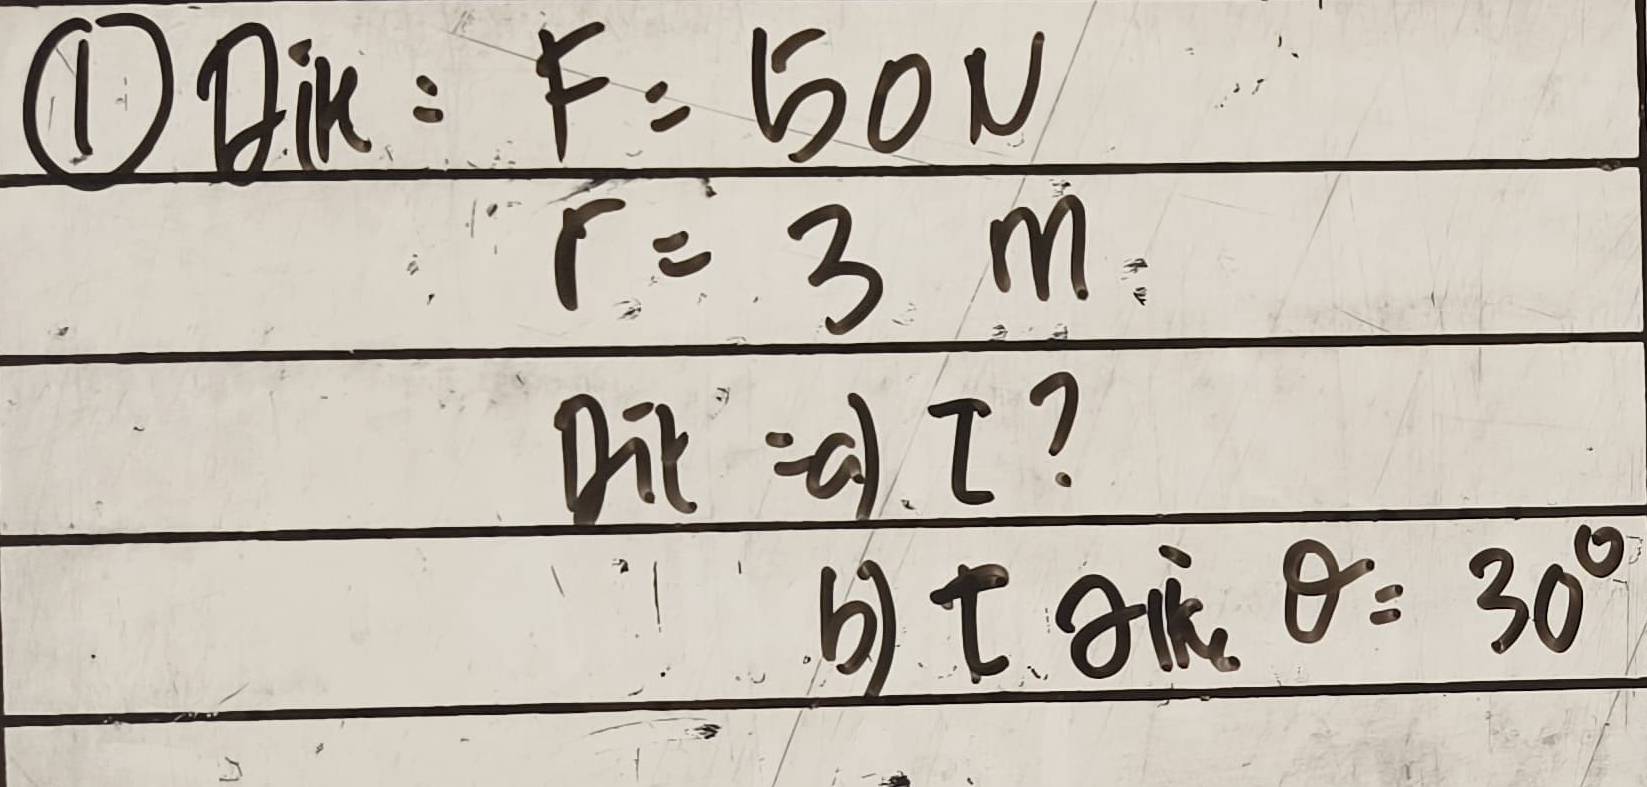 ① Dik : F = 50 N
r = 3 m
Dit = a) τ?
b) τ jika θ = 30°